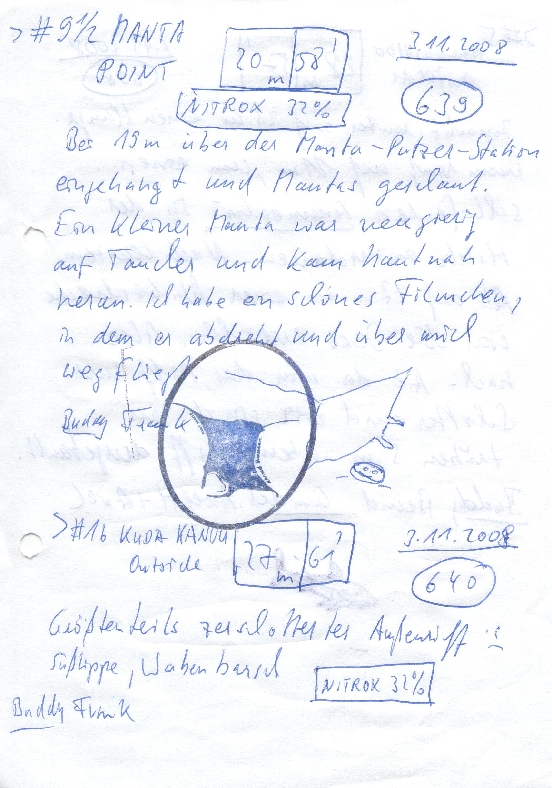 > #9½ MANTA
POINT
20 m 58'
3.11.2008
639
NITROX 32%
Bei 19m über der Manta-Putzer-Station
eingehängt und Mantas geschaut.
Ein kleiner Manta war neugierig
auf Taucher und kam hautnah
heran. Ich habe ein schönes Filmchen,
in dem er abdreht und über mich
weg fliegt.
Buddy Frank
> #16 KUDA KANDU
Outside
27 m 61'
3.11.2008
640
Größtenteils zerschotterter Außenriff :(
Süßlippe, Wabenbarsch
NITROX 32%
Buddy Frank